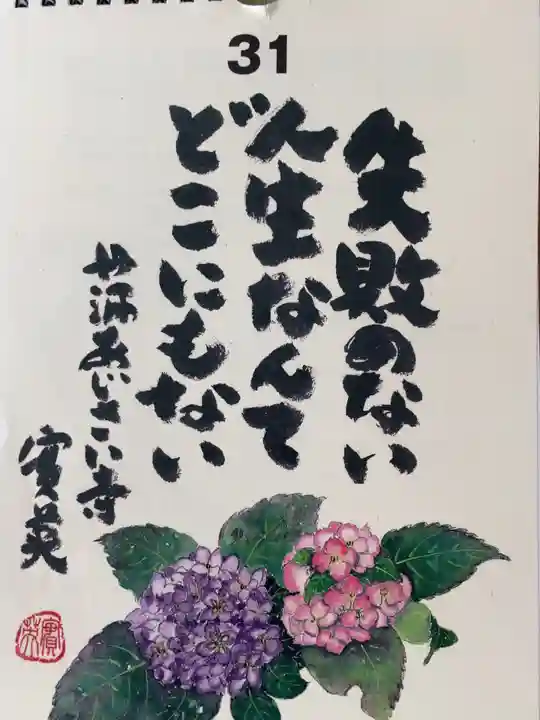 31
失敗のない
人生なんて
どこにもない
丹波あじさい寺
實英
實英